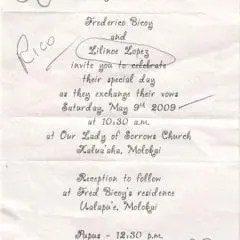 Frederico Bicoy
and
Lilinoe Lopez
RICO
invite you to celebrate
their special day
as they exchange their vows
Saturday, May 9th 2009
at 10:30 a.m.
at Our Lady of Sorrows Church
Kalua'aha, Molokai
Reception to follow
at Fred Bicoy's residence
Ualapu'e, Molokai
Pupus - 12:30 p.m.